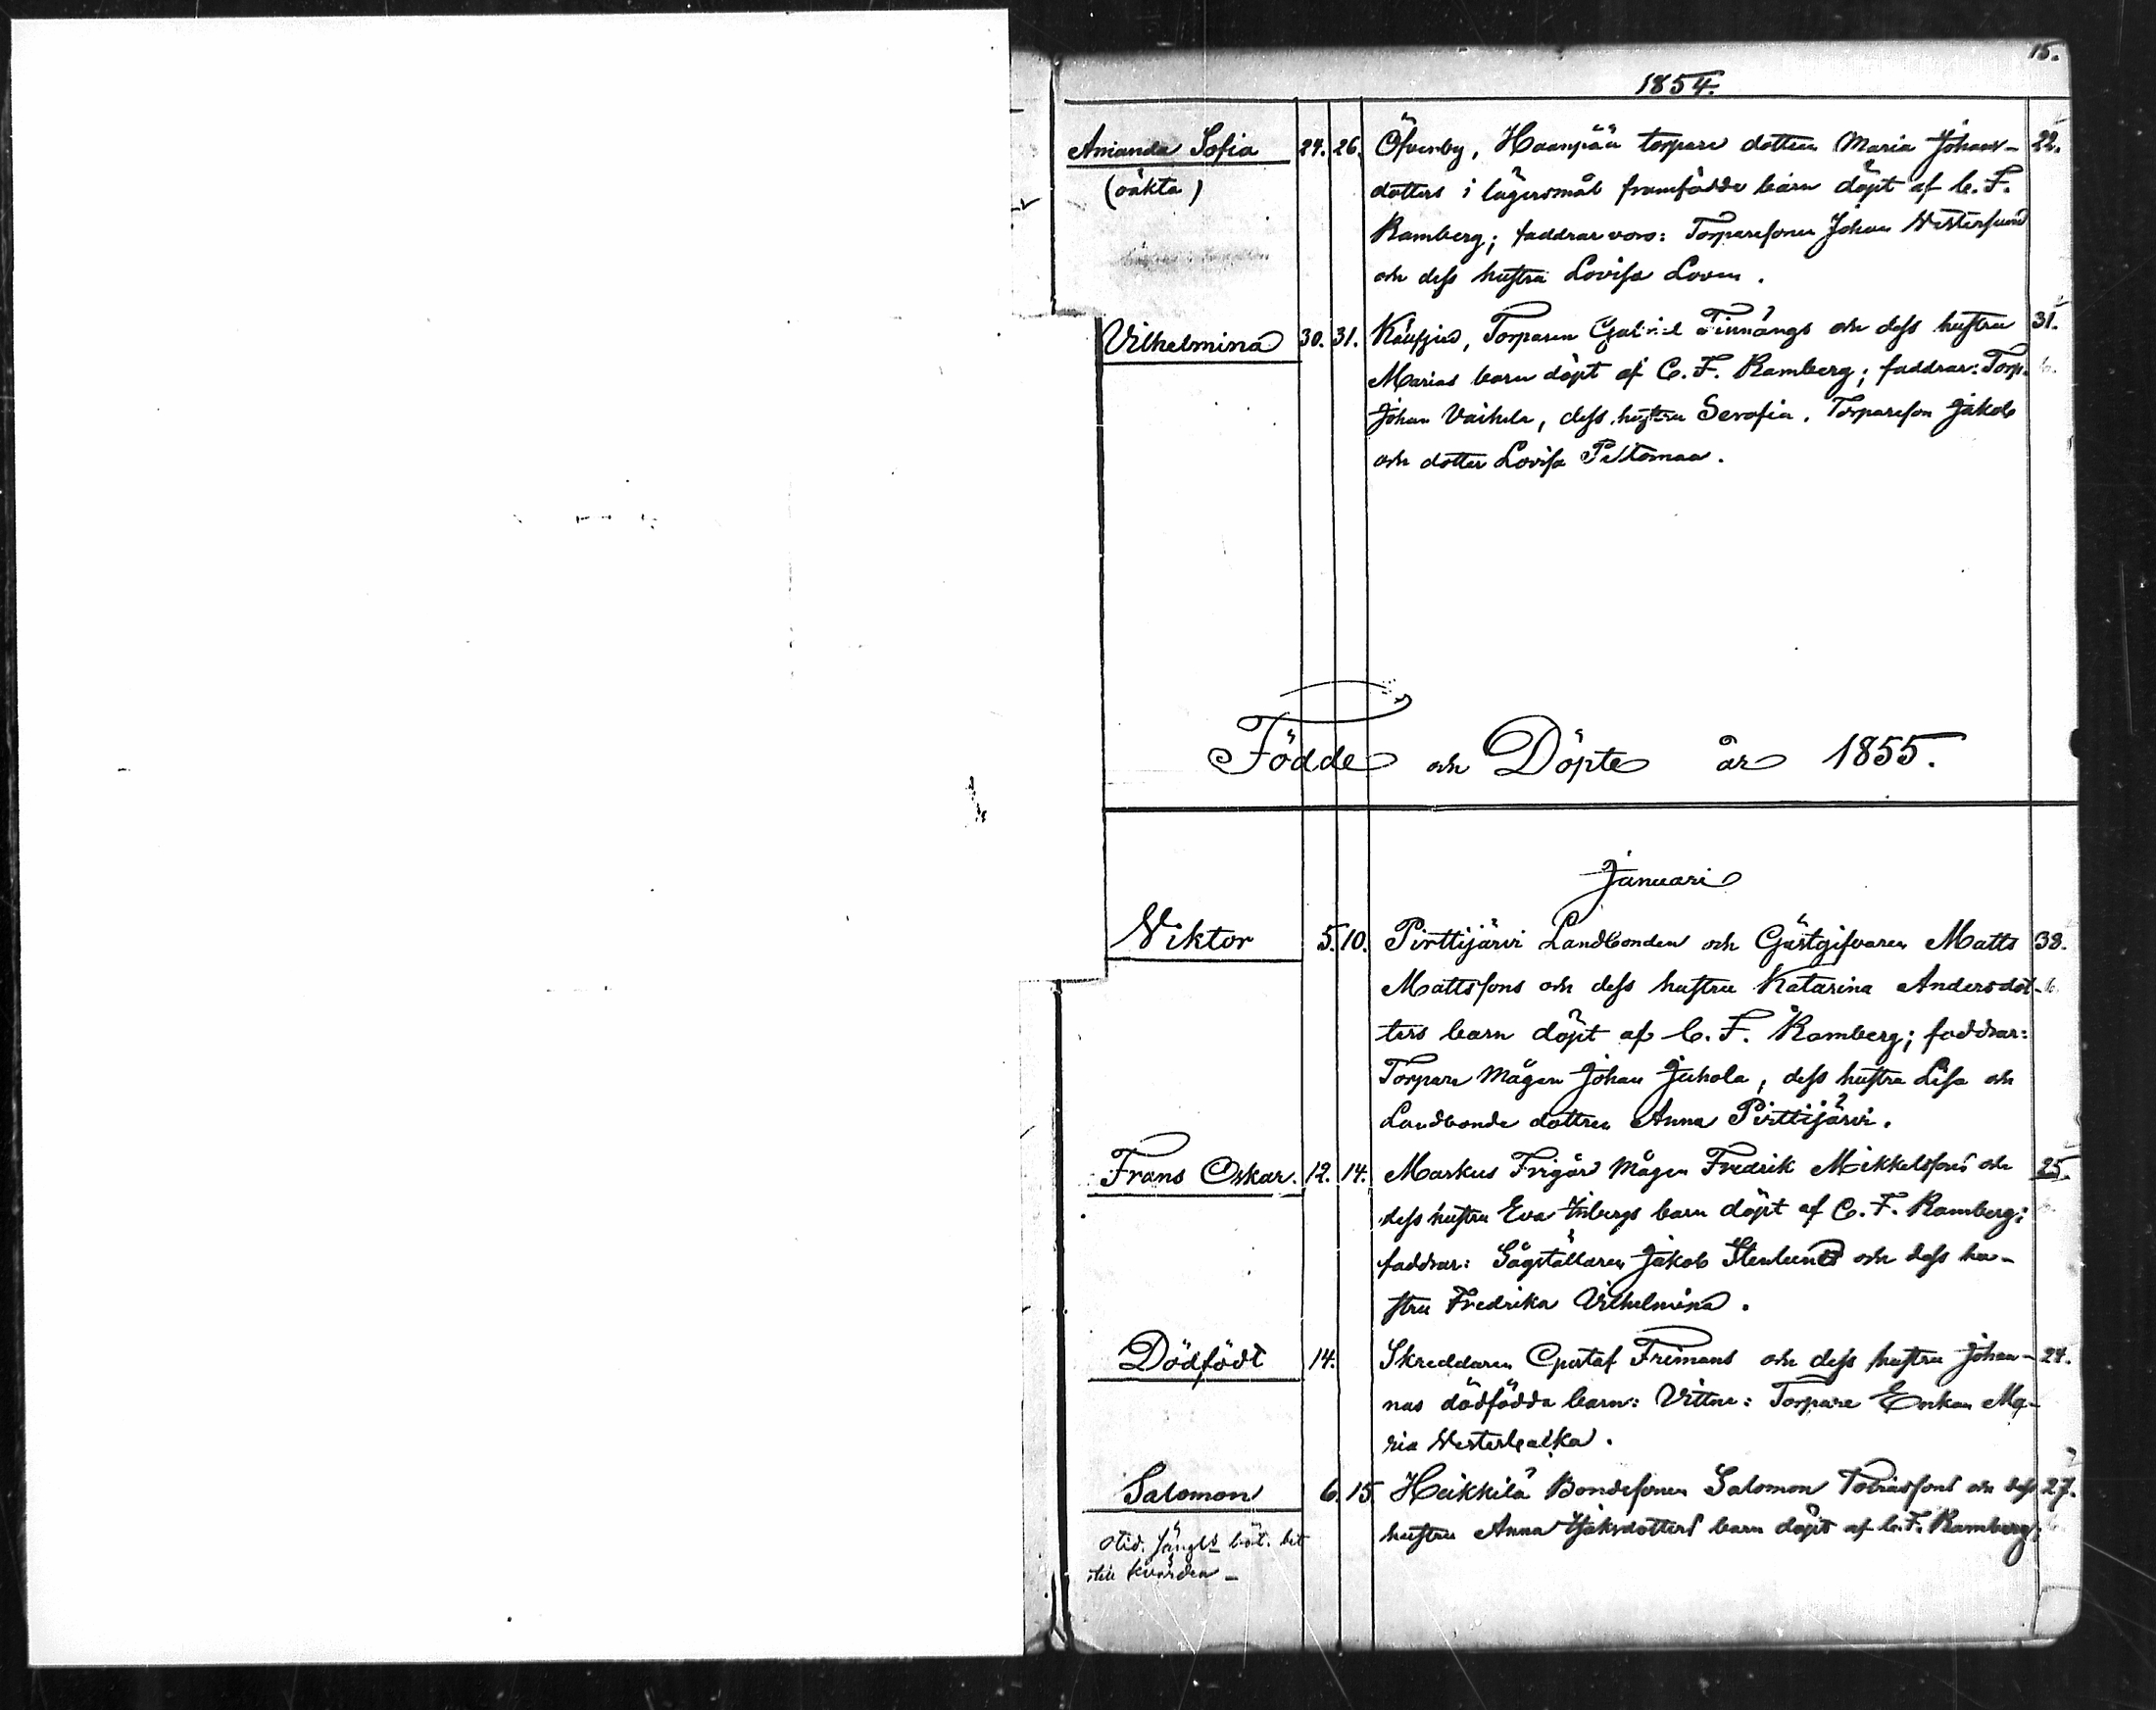 15.
1854.
Amanda Sofia 24. 26. Öfverby, Haanpää torpare dottren Maria Johans- 22.
(oäkta) dotters i lägersmål framfödde barn döpt af C. F.
Ramberg; faddrar voro: Torparesonen Johan Westersund
och dess hustru Lovisa
Vilhelmina 30. 31. Torparen Gabriel Finnängs och dess hustru 31.
Marias barn döpt af C. F. Ramberg; faddrar: Torp.
Johan Vaihela, dess hustru Serafia. Torpareson Jakob
och dotter Lovisa Peltomaa.
Födde och Döpte år 1855.
Januari
Viktor 5. 10. Pirttijärvi Landbonden och Gästgifvaren Matts 38.
Mattssons och dess hustru Katarina Andersdot-
ters barn döpt af C. F. Ramberg; faddrar:
Torpare Mågen Johan Juhola, dess hustru Lisa och
Landbonde dottren Anna Pirttijärvi.
Frans Oskar. 12. 14. Markus Frigård Mågen Fredrik Mikkelssons och 25.
dess hustru Eva barn döpt af C. F. Ramberg;
faddrar: Sågställaren Jakob Stenlund och dess hu-
stru Fredrika Vilhelmina.
Dödfödt 14. Skreddaren Gustaf Frimans och dess hustru Johan- 24.
nas dödfödda barn: Vittne: Torpare Enkan Ma-
ria Westerbalka.
Salomon 6. 15. Heikkilä Bondesonen Salomon Tobiassons och dess 27.
hustru Anna Isaksdotters barn döpt af C. F. Ramberg;